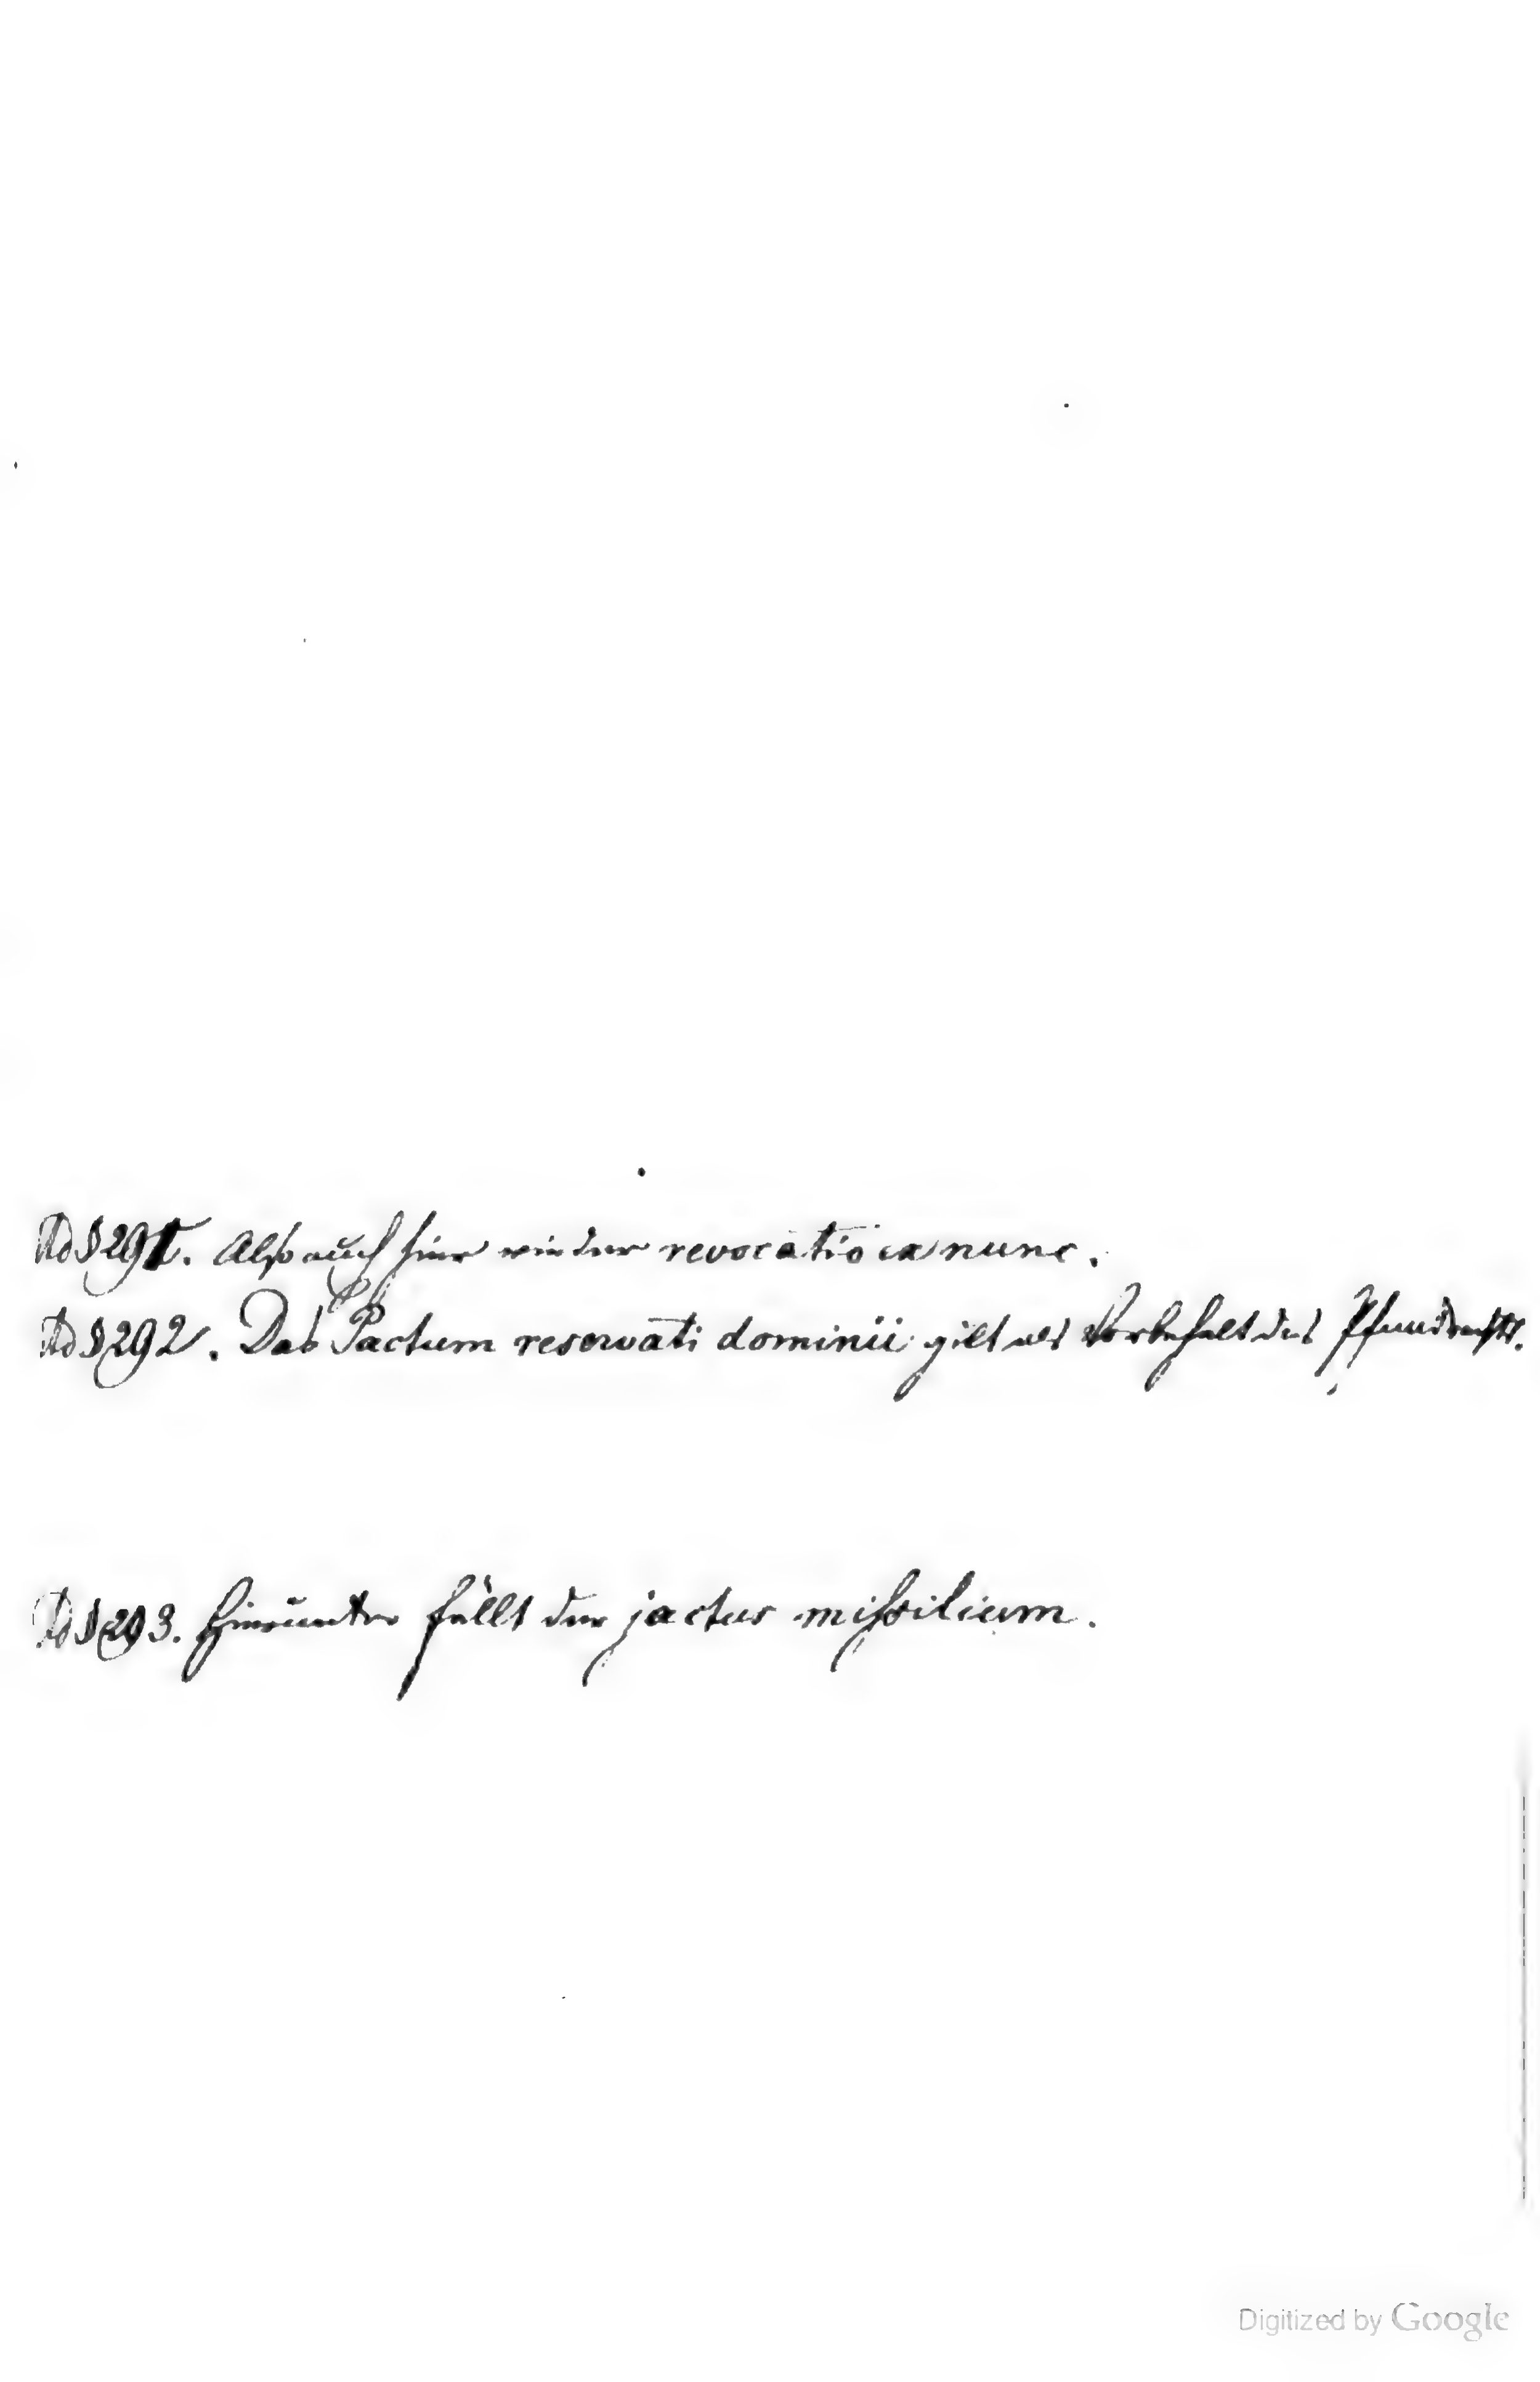 Ad § 291. Also auch hier wieder revocatio ex nunc.
Ad § 292. Das Pactum reservati dominii gilt als Vorbehalt des Pfandrechts.
Ad § 293. Hierunter fällt der jactus missilium.
Digitized by Google